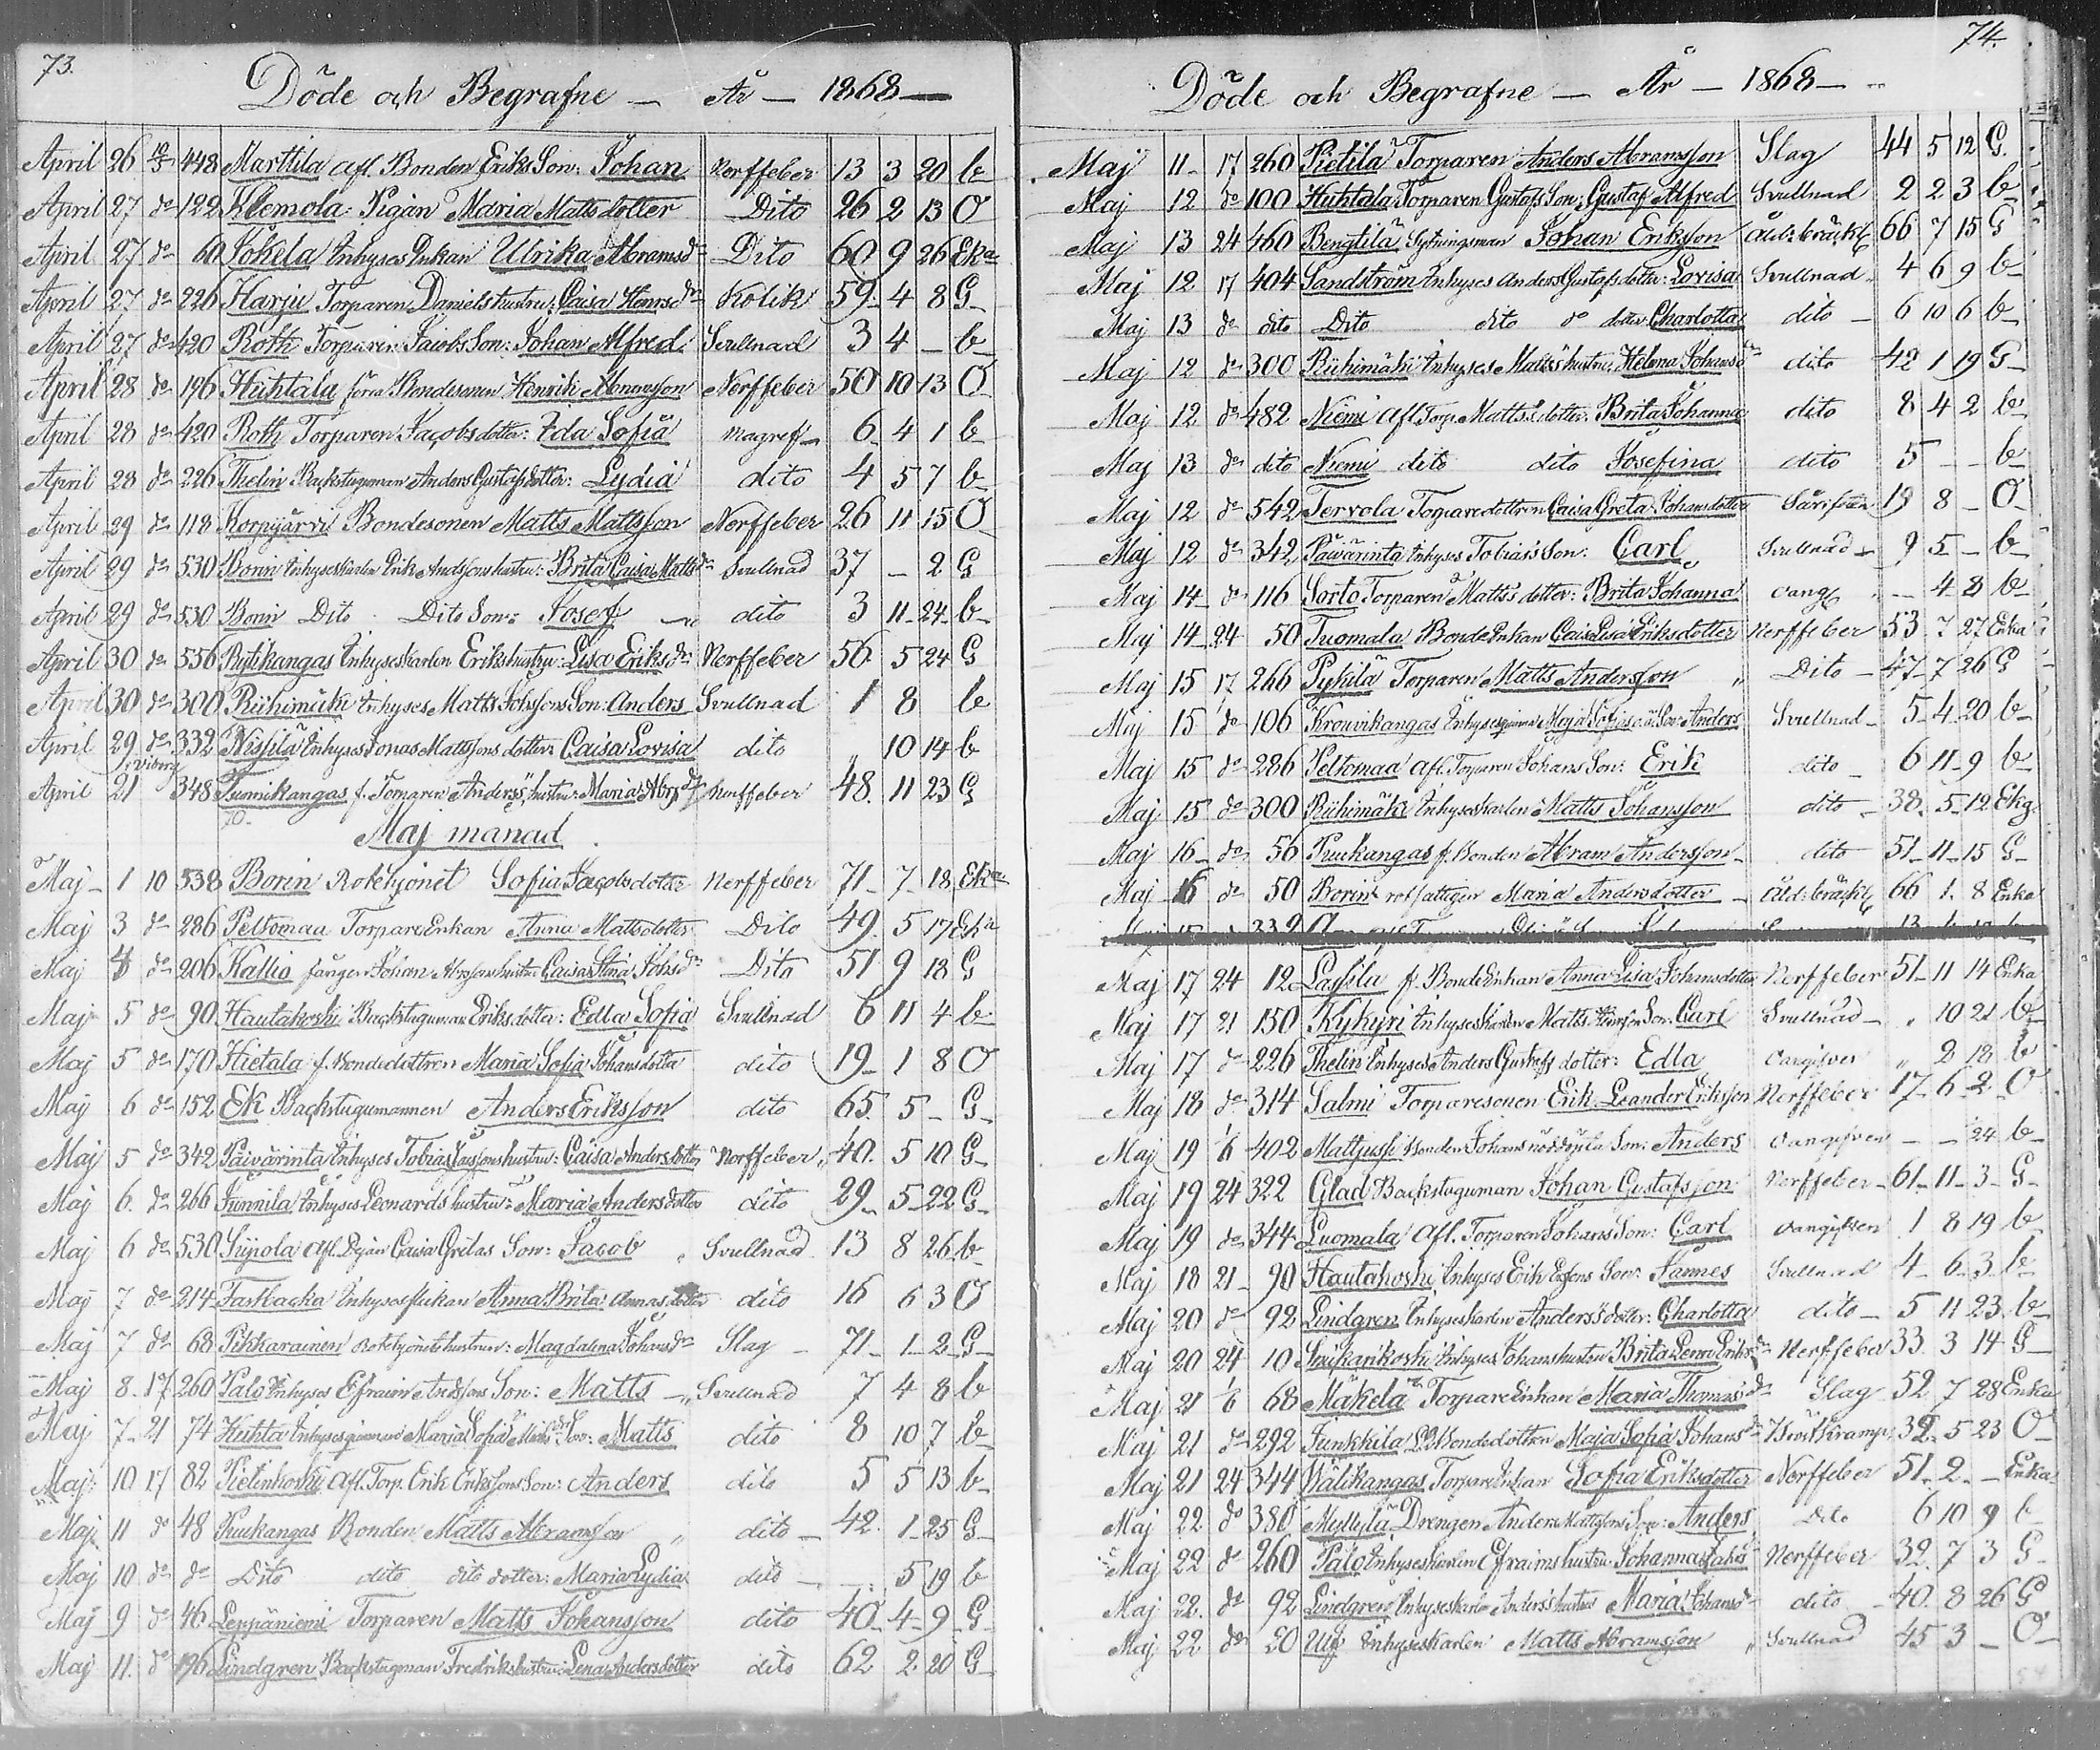 73.
Döde och Begrafne — År — 1868 —
April 26 10/5 448 Marttila afl. Bonden Eriks Son: Johan Nerffeber 13 3 20 b
April 27 do 122 Klemola Pigan Maria Mattsdotter Dito 26 2 13 O
April 27 do 60 Jokela Inhyses Enkan Ulrika Abramsdr Dito 60 9 26 Eka
April 27 do 226 Harju Torparen Daniels hustru: Caisa Henrsdr Kolik 59 4 8 G
April 27 do 420 Roth Torparen Jacobs Son: Johan Alfred Svullnad 3 4 — b
April 28 do 196 Huhtala förra Bondesonen Henrik Abramsson Nerffeber 50 10 13 O
April 28 do 420 Roth Torparen Jacobs dotter: Ida Sofia magref 6 4 1 b
April 28 do 226 Thelin Backstuguman Anders Gustafs dotter: Lydia dito 4 5 7 b
April 29 do 118 Korpijärvi Bondesonen Matts Mattsson Nerffeber 26 11 15 O
April 29 do 530 Borin Inhyseskarlen Erik Andssons hustru: Brita Caisa Mattsdr Svullnad 37 — 2 G
April 29 do 530 Borin Dito Dito Son: Josef dito 3 11 24 b
April 30 do 556 Rytikangas Inhyseskarlen Eriks hustru: Lisa Eriksdr Nerffeber 56 5 24 G
April 30 do 300 Riihimäki Inhyses Matts Johssons Son: Anders Svullnad 1 8 b
April 29 do 332 Nissilä Inhyses Jonas Mattssons dotter Caisa Lovisa dito " 10 14 b
April 21 Viborg 348 Tuomikangas f. Torparen Anders's hustru: Maria Abrsdr Nerffeber 48 11 23 G
70
Maj månad
Maj 1 10 538 Borin Rotehjonet Sofia Jacobsdotter Nerffeber 71 7 18 Eka
Maj 3 do 286 Peltomaa TorpareEnkan Anna Mattsdotter Dito 49 5 17 Eka
Maj 4 do 206 Kallio fången Johan Abrssons hustru Caisa Stina Johsdr Dito 51 9 18 G
Maj 5 do 90 Hautakoski Backstuguman Eriks dotter: Edla Sofia Svullnad 6 11 4 b
Maj 5 do 170 Hietala f. Bondedottren Maria Sofia Johansdotter dito 19 1 8 O
Maj 6 do 152 Ek Backstugumannen Anders Eriksson dito 65 5 — G
Maj 5 do 342 Päivärinta Inhyses Tobias hustru: Caisa Andersdotter Nerffeber 40 5 10 G
Maj 6 do 266 Junnila Inhyses Leonards hustru: Maria Andersdotter dito 29 5 22 G
Maj 6 do 530 Sujiola Afl. Pigan Caisa Gretas Son: Jacob Svullnad 13 8 26 b
Maj 7 do 214 Fastbacka Inhysesflickan Anna Brita Annasdotter dito 16 6 3 O
Maj 7 do 68 Pihkarainen Rotehjonets hustru: Magdalena Johansdr Slag 71 1 2 G
Maj 8 17 260 Palo Inhyses Efraim Andssons Son: Matts Svullnad 7 4 8 b
Maj 7 21 74 Huhta Inhyses Maria Sofia Son: Matts dito 8 10 7 b
Maj 10 17 82 Pietinkoski Afl. Torp. Erik Erikssons Son: Anders dito 5 5 13 b
Maj 11 do 48 Puukangas Bonden Matts Abramsson dito 42 1 25 G
Maj 10 do do Dito dito dito dotter: Maria Lydia dito — 5 19 b
Maj 9 do 46 Leppäniemi Torparen Matts Johansson dito 40 4 9 G
Maj 11 do 196 Lindgren Backstuguman Fredriks hustru: Lena Andersdotter dito 62 2 20 G
74.
Döde och Begrafne — År — 1868 —
Maj 11 17 260 Pietilä Torparen Anders Abramsson Slag 44 5 12 G
Maj 12 do 100 Huhtala Torparen Gustafs Son: Gustaf Alfred Svullnad 2 2 3 b
Maj 13 24 460 Bengtilä Sytningsman Johan Eriksson Åld: bräckl 66 7 15 G
Maj 12 17 404 Sandström Inhyses Anders Gustafs dotter: Lovisa Svullnad 4 6 9 b
Maj 13 do dito Dito dito do dotter Charlotta dito 6 10 6 b
Maj 12 do 300 Riihimäki Inhyses Matts's hustru: Helena Johansdr dito 42 1 19 G
Maj 12 do 482 Niemi Afl. Torp. Matts's dotter: Brita Johanna dito 8 4 2 b
Maj 13 do dito Niemi dito dito Josefina dito 5 — — b
Maj 12 do 542 Tervola Torparedottren Caisa Greta Johansdotter 19 8 — O
Maj 12 do 342 Päivärinta Inhyses Tobias's Son: Carl Svullnad 9 5 — b
Maj 14 do 116 Sorto Torparen Matts's dotter: Brita Johanna oangf — 4 8 b
Maj 14 24 50 Tuomala BondeEnkan Caisa Lisa Eriksdotter Nerffeber 53 7 27 Enka
Maj 15 17 266 Pykilä Torparen Matts Andersson Dito 47 7 26 G
Maj 15 do 106 Krouvikangas Inhyses Maja Son: Anders Svullnad 5 4 20 b
Maj 15 do 286 Peltomaa Afl. Torparen Johans Son: Erik dito 6 11 9 b
Maj 15 do 300 Riihimäki Inhyseskarlen Matts Johansson dito 38 5 12 Ekg
Maj 16 do 56 Puukangas f. Bonden Abram Andersson dito 51 11 15 G
Maj 16 do 50 Borin rotfattigen Maria Andersdotter Åld: bräckl 66 1 8 Enka
Maj 17 24 12 Lassila f. BondeEnkan Anna Lisa Johansdotter Nerffeber 51 11 14 Enka
Maj 17 21 150 Kykyri Inhyseskarlen Matts Son: Carl Svullnad " 10 21 b
Maj 17 do 226 Thelin Inhyses Anders Gustafs dotter: Edla oangifven " 2 18 b
Maj 18 do 314 Salmi Torparesonen Erik Leander Eriksson Nerffeber 17 6 2 O
Maj 19 1/6 402 Mattjussi Bonden Johans Son: Anders oangifven — — 24 b
Maj 19 24 322 Glad Backstuguman Johan Gustafsson Nerffeber 61 11 3 G
Maj 19 do 344 Luomala Afl. Torparen Johans Son: Carl oangifven 1 8 19 b
Maj 18 21 90 Hautakoski Inhyses Erik Erssons Son: Hannes Svullnad 4 6 3 b
Maj 20 do 92 Lindgren Inhyseskarlen Anders's dotter: Charlotta dito 5 11 23 b
Maj 20 24 10 Inhyses Johans hustru Brita Lena Eriksdr Nerffeber 33 3 14 G
Maj 21 1/6 68 Mäkelä TorpareEnkan Maria Thomasdr Slag 52 7 28 Enka
Maj 21 do 292 Junkkila Bondedottren Maja Sofia Johansdr Kramp 32 5 23 O
Maj 21 24 344 Wälikangas TorpareEnkan Sofia Eriksdotter Nerffeber 51 2 — Enka
Maj 22 do 380 Myllylä Drengen Anders Mattssons Son: Anders Dito 6 10 9 b
Maj 22 do 260 Palo Inhyseskarlen Efraims hustru: Johanna Jakosdr Nerffeber 32 7 3 G
Maj 22 do 92 Lindgren Inhyseskarlen Anders's hustru Maria Johansdr dito 40 8 26 G
Maj 22 do 20 Ulf Inhyseskarlen Matts Abramsson Svullnad 45 3 — O